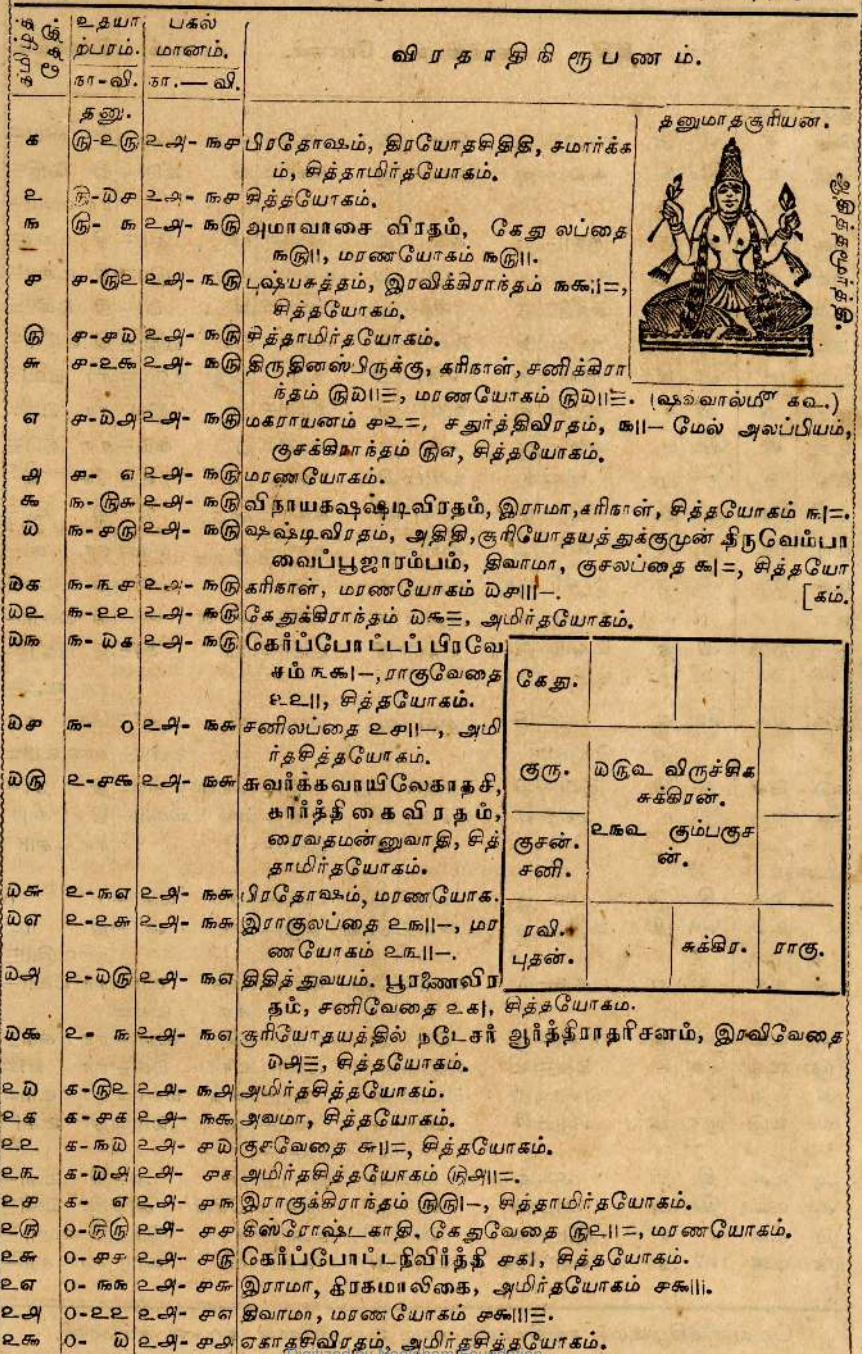 தமிழ்த் தேதி.
உதயா
ற்பரம்.
நா-வி.
பகல்
மானம்.
நா.— வி.
விரதாதிநிரூபணம்.
தனு.
தனுமாதசூரியன்.
க ௫-உ௫ உஅ- ௩௪ பிரதோஷம், திரயோதசிதிதி, சமார்க்க
ம், சித்தாமிர்தயோகம்.
உ ௫-௰௪ உஅ- ௩௪ சித்தயோகம்.
௩ ௫- ௩ உஅ- ௩௫ அமாவாசை விரதம், கேது லப்தை
௩௫॥, மரணயோகம் ௩௫॥.
௪ ௪-௫உ உஅ- ௩௫ புஷ்யசுத்தம், இரவிக்கிராந்தம்
சித்தயோகம்.
௫ ௪-௪௰ உஅ- ௩௫ சித்தாமிர்தயோகம்.
௬ ௪-உ௯ உஅ- ௩௫ திருதினஸ்பிருக்கு, கரிநாள், சனிக்கிரா
ந்தம் ௫௰॥≡, மரணயோகம் ௫௰॥≡.
எ ௪-௰அ உஅ- ௩௫ மகராயனம் ௪உ=, சதுர்த்திவிரதம், ௩॥– மேல் அலப்பியம்,
குசக்கிராந்தம் ௫எ, சித்தயோகம்.
அ ௪- எ உஅ- ௩௫ மரணயோகம்.
௯ ௩-௫௬ உஅ- ௩௫ விநாயகஷஷ்டிவிரதம், இராமா, கரிநாள், சித்தயோகம் ௬|=.
௰ ௩-௪௫ உஅ- ௩௫ ஷஷ்டிவிரதம், அதிதி, சூரியோதயத்துக்குமுன் திருவெம்பா
வைப்பூஜாரம்பம், திவாமா, குசலப்தை ௯|=, சித்தயோ
[கம்.
௰க ௩-௩௪ உஅ- ௩௫ கரிநாள், மரணயோகம் ௰௪|||–.
௰உ ௩-உஉ உஅ- ௩௫ கேதுக்கிராந்தம் ௰௯≡, அமிர்தயோகம்.
௰௩ ௩- ௰க உஅ- ௩௫ கெர்ப்போட்டப் பிரவே
சம் ௩௯|–, ராகுவேதை
உஉ॥, சித்தயோகம்.
௰௪ ௩- 0 உஅ- ௩௬ சனிலப்தை உ௪॥–, அமி
ர்தசித்தயோகம்.
௰௫ உ-௪௯ உஅ- ௩௬ சுவர்க்கவாயிலேகாதசி,
கார்த்திகைவிரதம்,
ரைவதமன்னுவாதி, சித்
தாமிர்தயோகம்.
௰௬ உ-௩எ உஅ- ௩௬ பிரதோஷம், மரணயோக.
௰எ உ-உ௬ உஅ- ௩௬ இராகுலப்தை உ௩॥–, மர
ணயோகம் உ௩॥–.
௰அ உ-௰௫ உஅ- ௩எ திதித்துவயம். பூரணைவிர
தம், சனிவேதை உக|, சித்தயோகம.
கேது.
குரு.
௰௫௳ விருச்சிக
சுக்கிரன்.
குசன்.
சனி.
உ௩௳ கும்பகுச
ன்.
ரவி.
புதன்.
சுக்கிர.
ராகு.
௰௯ உ- ௩ உஅ- ௩எ சூரியோதயத்தில் நடேசர் ஆர்த்திராதரிசனம், இரவிவேதை
௰அ≡, சித்தயோகம்.
உ௰ க-௫உ உஅ- ௩அ அமிர்தசித்தயோகம்.
உக க-௪க உஅ- ௩௯ அவமா, சித்தயோகம்.
உஉ க-௩௰ உஅ- ௪௰ குசவேதை ௬॥=, சித்தயோகம்.
உ௩ க-௰அ உஅ- ௪க அமிர்தசித்தயோகம் ௫அ॥=.
உ௪ க- எ உஅ- ௪௩ இராகுக்கிராந்தம் ௫௫|–, சித்தாமிர்தயோகம்.
உ௫ 0-௫௫ உஅ- ௪௪ கிஸ்ரோஷ்டகாதி, கேதுவேதை ௫உ॥=, மரணயோகம்.
உ௬ 0-௪௪ உஅ- ௪௫ கெர்ப்போட்டநிவிர்த்தி ௪க|, சித்தயோகம்.
உஎ 0- ௩௩ உஅ- ௪௬ இராமா, கிரகமாலிகை, அமிர்தயோகம்
உஅ 0-உஉ உஅ- ௪எ திவாமா, மரணயோகம் ௪௯|||≡.
உ௯ 0- ௰ உஅ- ௪அ ஏகாதசிவிரதம், அமிர்தசித்தயோகம்.